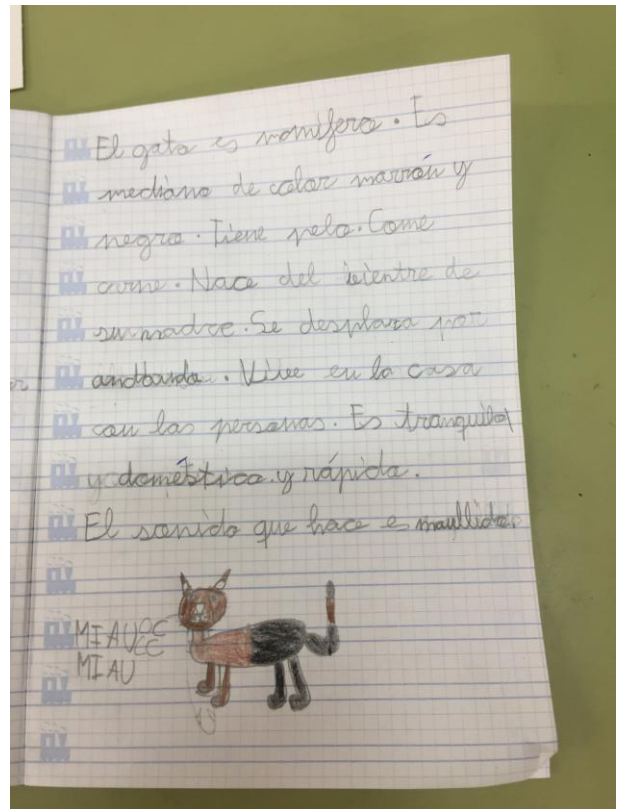 El gato es momífero. Es
mediano de color marrón y
negro. Tiene pelo. Come
carne. Nace del vientre de
su madre. Se desplaza por
andando. Vive en la casa
con las personas. Es tranquilo
y doméstico y rápido.
El sonido que hace es maullido.
MIAU
MIAU